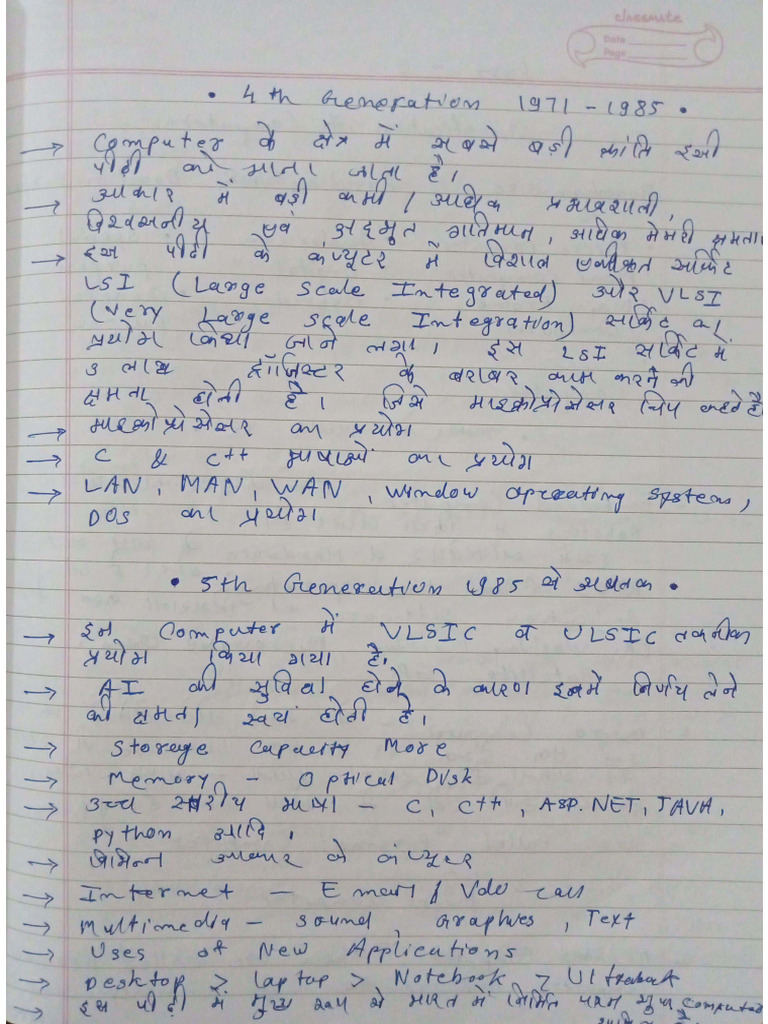 classmate
Date
Page
• 4th Generation 1971 - 1985 •
→ Computer के क्षेत्र में सबसे बड़ी क्रांति इसी
पीढ़ी को माना जाता है।
→ आकार में बड़ी कमी, अधिक प्रभावशाली,
विश्वसनीय एवं अद्भुत गतिमान, अधिक मेमरी क्षमता
→ इस पीढ़ी के कंप्यूटर में विशाल एकीकृत सर्किट
LSI (Large Scale Integrated) और VLSI
(Very Large Scale Integration) सर्किट का
प्रयोग किया जाने लगा। इस LSI सर्किट में
3 लाख ट्रांजिस्टर के बराबर काम करने की
क्षमता होती है। जिसे माइक्रोप्रोसेसर चिप कहते है
→ माइक्रोप्रोसेसर का प्रयोग
→ C & C++ भाषाओं का प्रयोग
→ LAN, MAN, WAN, Window Operating System,
DOS का प्रयोग
• 5th Generation 1985 से अबतक •
→ इन Computer में VLSIC व ULSIC तकनीक
प्रयोग किया गया है।
→ AI की सुविधा होने के कारण इनमें निर्णय लेने
की क्षमता स्वयं होती है।
→ Storage Capacity More
→ Memory - Optical Disk
→ उच्च स्तरीय भाषा - C, C++, ASP.NET, JAVA,
Python आदि।
→ विभिन्न आकार के कंप्यूटर
→ Internet - Email / Vdo Call
→ Multimedia - Sound, Graphics, Text
→ Uses of New Applications
→ Desktop > Laptop > Notebook > Ultrabook
→ इस पीढ़ी में मुख्य रूप से भारत में निर्मित परम सुपर Computer